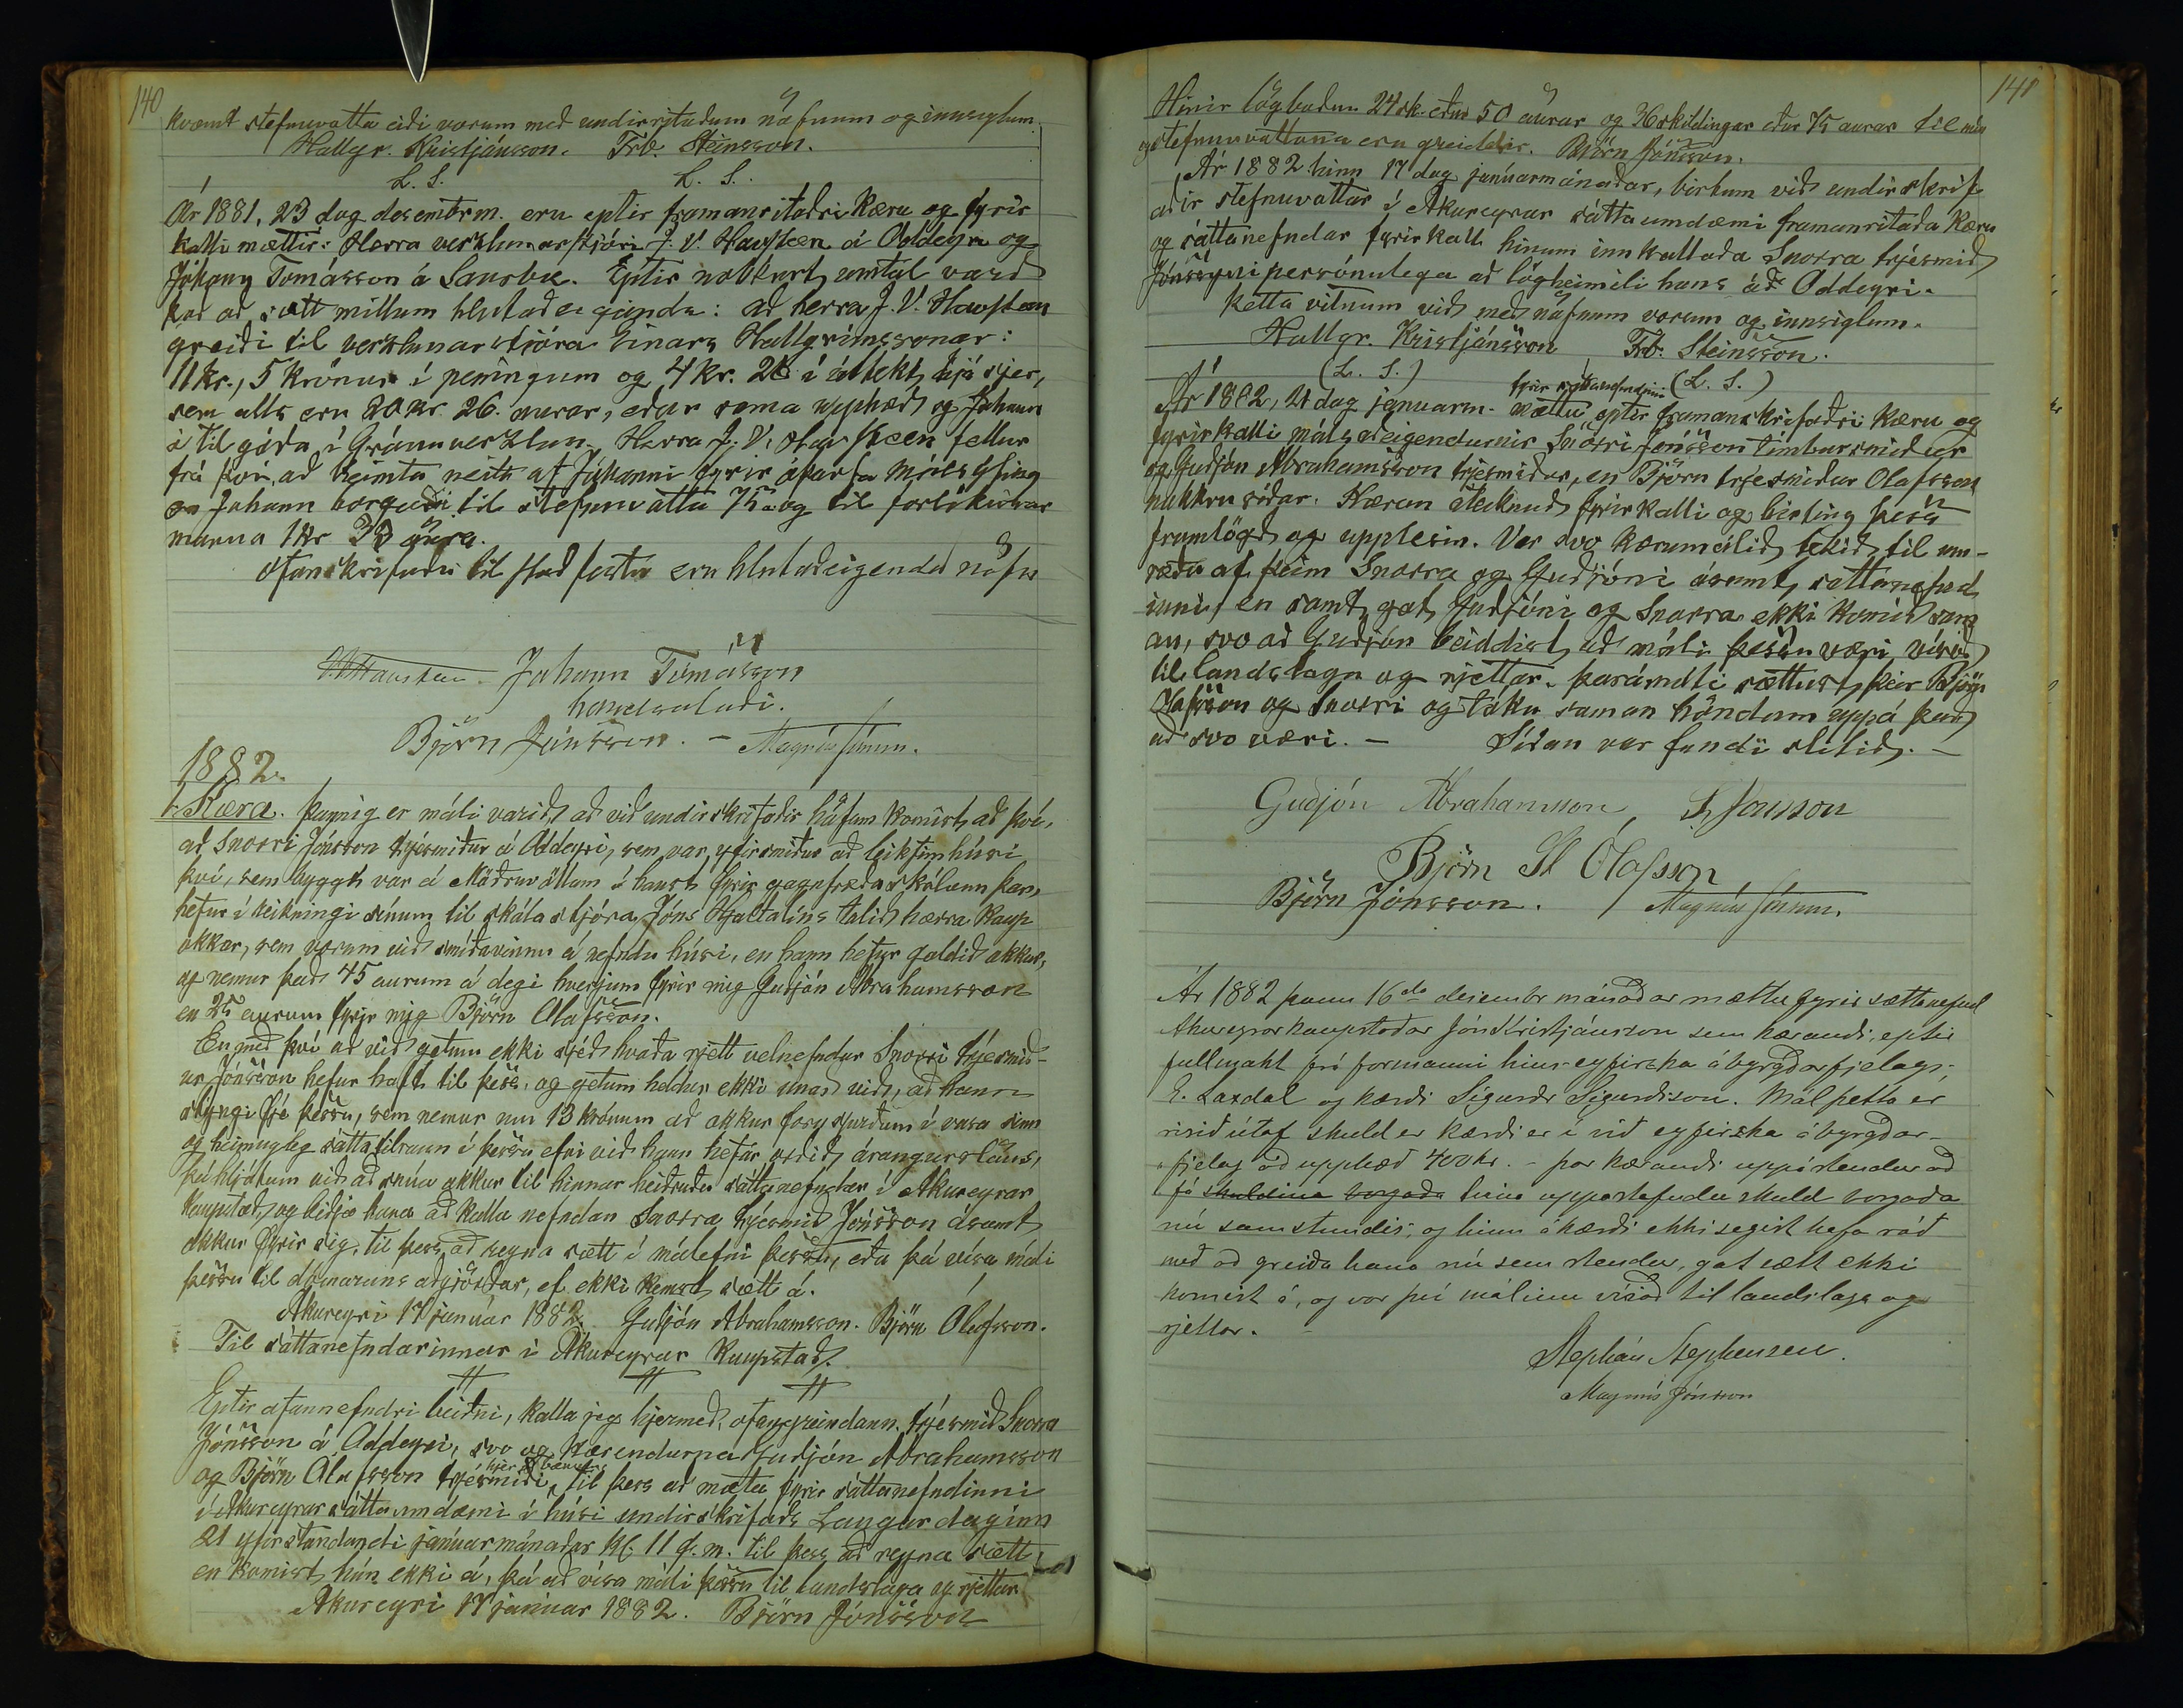 140
kvæmt stefnuvotta eiði vorum með undirrituðum nöfnum og innsiglum.
Hallgr. Kristjánsson. Frb. Steinsson.
L. S. L. S.
Ár 1881, 23 dag desembrm. eru eptir framanritaðri kæru og fyrir
kalli mættir: Herra verzlunarstjóri J. V. Havsteen á Oddeyri og
Jóhann Tomásson á Saurbæ. Eptir nokkurt umtal varð
það að sætt millum hlutaðeigenda: að herra J. V. Havsteen
greiði til verzlunarstjóra Einars Hallgrímssonar:
11 kr., 5 krónur í peningum og 4 kr. 26 í úttekt hjá sjer,
sem alls eru 20 kr. 26. aurar, eður sama upphæð og Jóhann
á til góða í Gránuverzlun. Herra J. V. Havsteen fellur
frá því, að heimta neitt af Jóhanni fyrir óþarfa málsýfing
en Jóhann borgaði til stefnuvotta 75 a. og til forlíkunar
manna 1 kr 33 aura.
Ofanskrifuðu til staðfestu eru hlutaðeigenda nöfn
J.V.Havsteen Jóhann Tómásson
handsalaði.
Björn Jónsson. – Magnús Jónsson.
1882.
1. Kæra. Þannig er máli varið, að við undirskrifaðir höfum komist að því,
að Snorri Jónsson trjesmiður á Oddeyri, sem var yfirsmiður að leikfimhúsi
því, sem byggt var á Möðruvöllum í haust fyrir gagnfræðaskólann þar,
hefur í reikningi sínum til skólastjóra Jóns Hjaltalíns talið hærra kaup
okkar, sem vorum við smíðavinnu á nefndu húsi, en hann hefur goldið okkur,
og nemur það 45 aurum á degi hverjum fyrir mig Guðjón Abrahamsson
en 25 aurum fyrir mig Björn Olafsson.
En með því að við getum ekki sjeð hvaða rjett velnefndur Snorri trjesmið-
ur Jónsson hefur haft til þess, og getum heldur ekki unað við, að hann
stingi fje þessu, sem nemur um 13 krónum að okkur forspurðum í vasa sinn
og heimugleg sáttatilraun í þessu efni við hann hefur orðið árangurslaus,
þá hljótum við að snúa okkur til hinnar heiðruðu sáttanefndar í Akureyrar
kaupstað, og biðja hana að kalla nefndan Snorra trjesmið Jónsson ásamt
okkur fyrir sig, til þess að reyna sætt í málefni þessu, eða þá vísa máli
þessu til dómarans aðgjörðar, ef ekki kemst sætt á.
Akureyri 17 janúar 1882. Guðjón Abrahamsson. Björn Ólafsson.
Til sáttanefndarinnar í Akureyrar kaupstað.
Eptir ofannefndri beiðni, kalla jeg hjermeð, ofangreindann trjesmið Snorra
Jónsson á Oddeyri, svo og kærendurna Guðjón Abrahamsson
og Björn Olafsson trjesmiði, hjer í bænum til þess að mæta fyrir sáttanefndinni
í Akureyrar sáttaumdæmi í húsi undirskrifaðs Laugardaginn
21 yfirstandandi janúarmánaðar kl. 11 f. m. til þess að reyna sætt,
en komist hún ekki á, þá að vísa máli þessu til landslaga og rjettar.
Akureyri 17 janúar 1882. Björn Jónsson
141
Hinir lögboðnu 24 sk. eður 50 aurar og 36 skildingar eður 75 aurar til mín
og stefnuvottana eru greiddir. Björn Jónsson.
Ár 1882 hinn 17 dag janúarmánaðar, birtum við undirskrif
aðir stefnuvottar í Akureyrar sáttaumdæmi framanritaða kæru
og sáttanefndar fyrirkall hinum innkallaða Snorra trjesmið
Jónssyni persónulega að lögheimili hans á Oddeyri.
þetta vitnum við með nöfnum vorum og innsiglum.
Hallgr. Kristjánsson Frb. Steinsson.
(L. S.) (L. S.)
Ár 1882, 21 dag januarm. mættu fyrir sáttanefndinni eptir framanskrifaðri kæru og
fyrirkalli málsaðeigendurnir Snorri Jónsson timbursmiður
og Guðjón Abrahamsson trjesmiður, en Björn trjesmiður Olafsson
nokkru síðar. Kæran áteiknuð fyrirkalli og birting þess
framlögð og upplesin. Var svo kærumálið tekið til um-
ræðu af þeim Snorra og Guðjóni ásamt sáttanefnd
inni, en samt gat Guðjóni og Snorra ekki komið sam
an, svo að Guðjón beiddist að máli þessu væri vísað
til landslaga og rjettar. þarámóti sættust þeir Björn
Olafsson og Snorri og toku saman höndum uppá það
að svo væri. – Síðan var fundi slitið. –
Guðjón Abrahamsson, S Jónsson
Björn St Ólafsson
Björn Jónsson. / Magnús Jónsson.
Ár 1882 þann 16da desembr mánaðar mættu fyrir sættanefnd
Akureyrarkaupstaðar Jón Kristjánsson sem kærandi, eptir
fullmakt frá formanni hins eyfirska ábyrgðarfjelags,
E. Laxdal og kærði Sigurðr Sigurðsson. Mál þetta er
risið útaf skuld er kærði er í við eyfirska ábyrgðar-
fjelag að upphæð 400 kr. – þar kærandi uppástendur að
fá skuldina borgaða hina uppástefndu skuld borgaða
nú samstundis, og hinn ákærði ekki segist hafa ráð
með að greiða hana nú sem stendur, gat sætt ekki
komist á, og var því málinu vísað til landslaga og
rjettar. –
Stephán Stephensen.
Magnús Jónsson